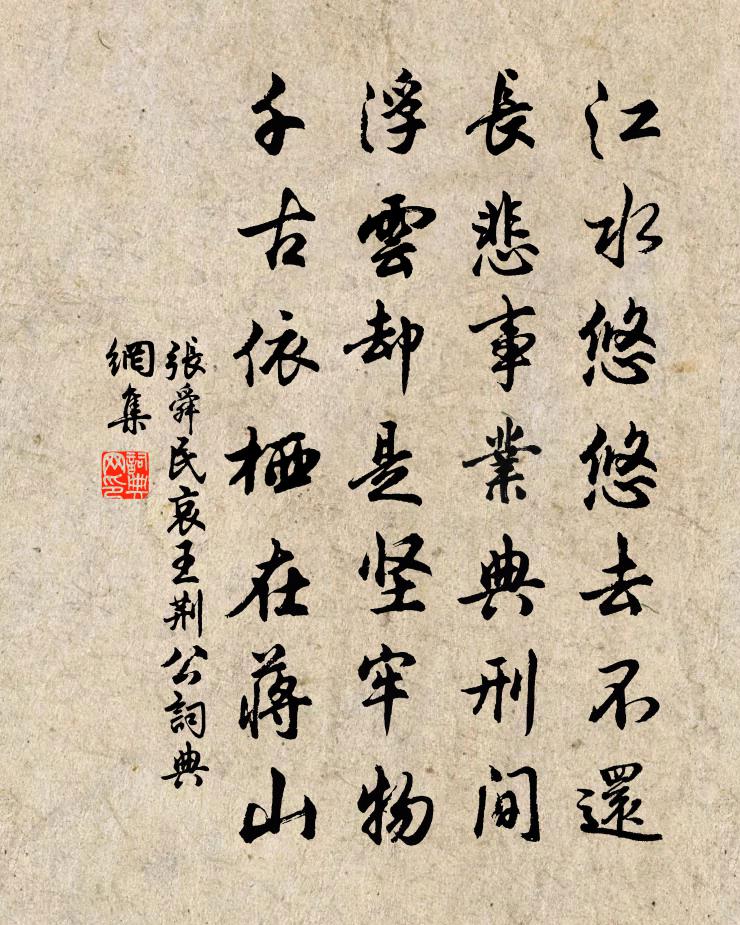 江水悠悠去不還
長悲事業典刑間
浮雲却是坚牢物
千古依栖在蔣山
張舜民哀王荆公詞典
網集
詞典
网印